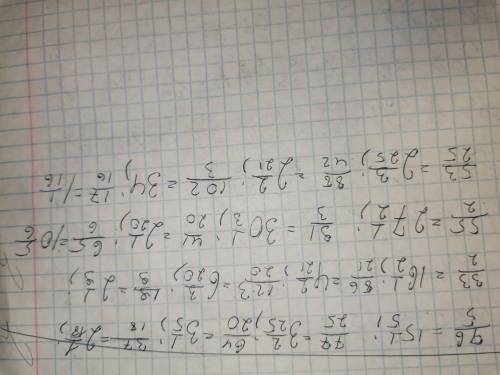 76/5 = 15 1/5); 77/25 = 3 2/25); 64/20 = 3 1/5); 37/18 = 2 1/18);
33/2 = 16 1/2); 86/21 = 4 2/21); 123/20 = 6 3/20); 19/9 = 2 1/9);
55/2 = 27 1/2); 91/3 = 30 1/3); 41/20 = 2 1/20); 65/6 = 10 5/6
53/25 = 2 3/25); 102/3 = 34); 17/16 = 1 1/16